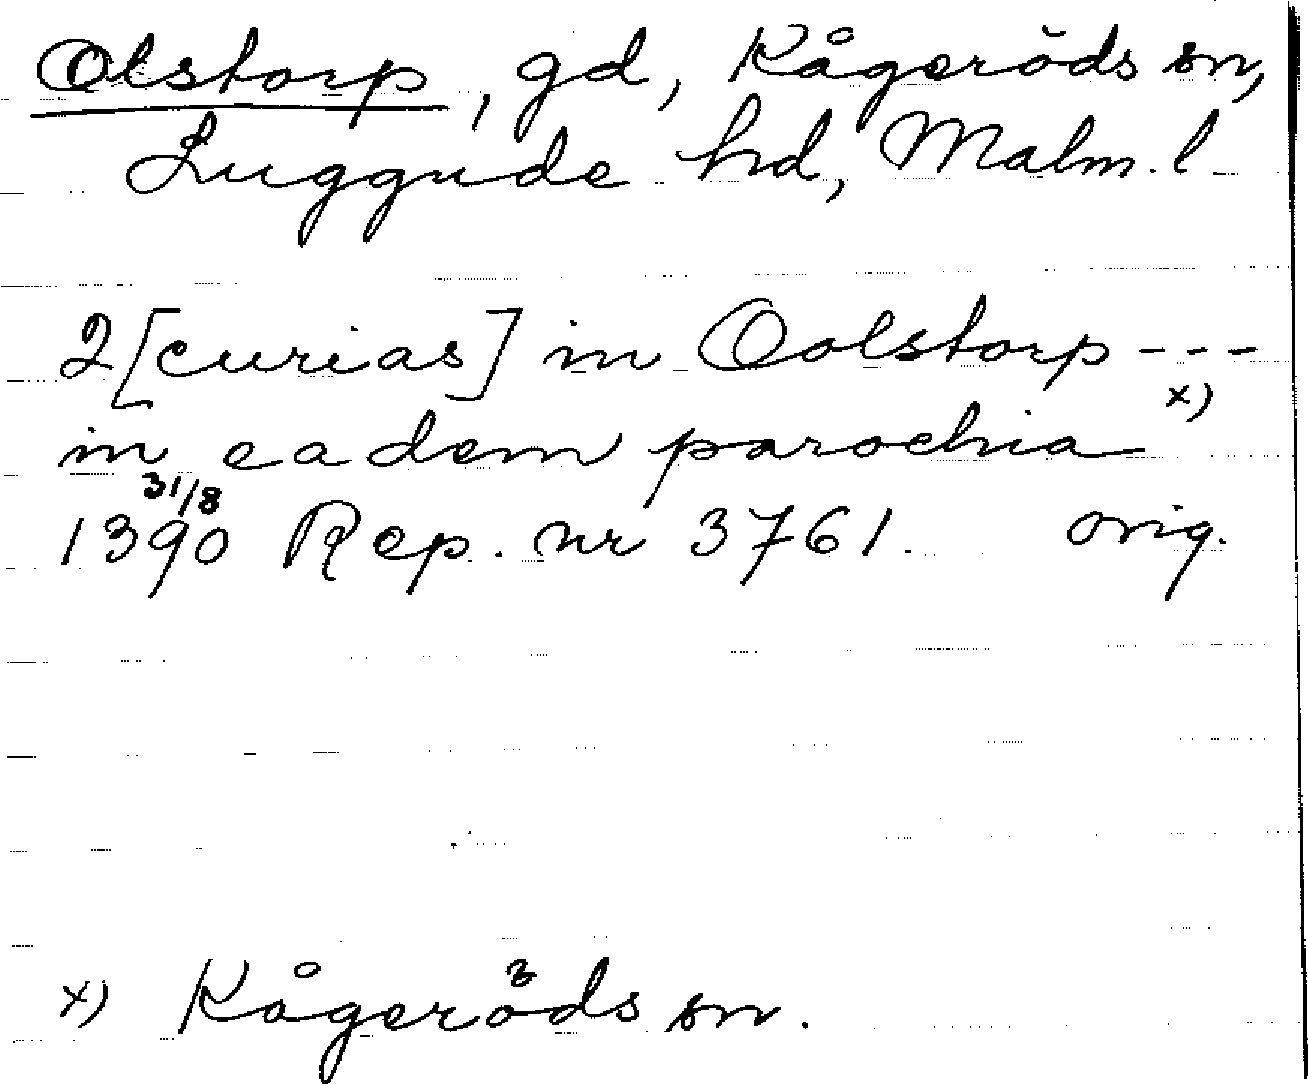 Olstorp, gd, Kågeröds sn,
Luggude hd, Malm. l
2 [curias] in Oolstorp ---
in eadem parochia x)
31/8
1390 Rep. nr 3761. orig.
x) Kågeröds sn.